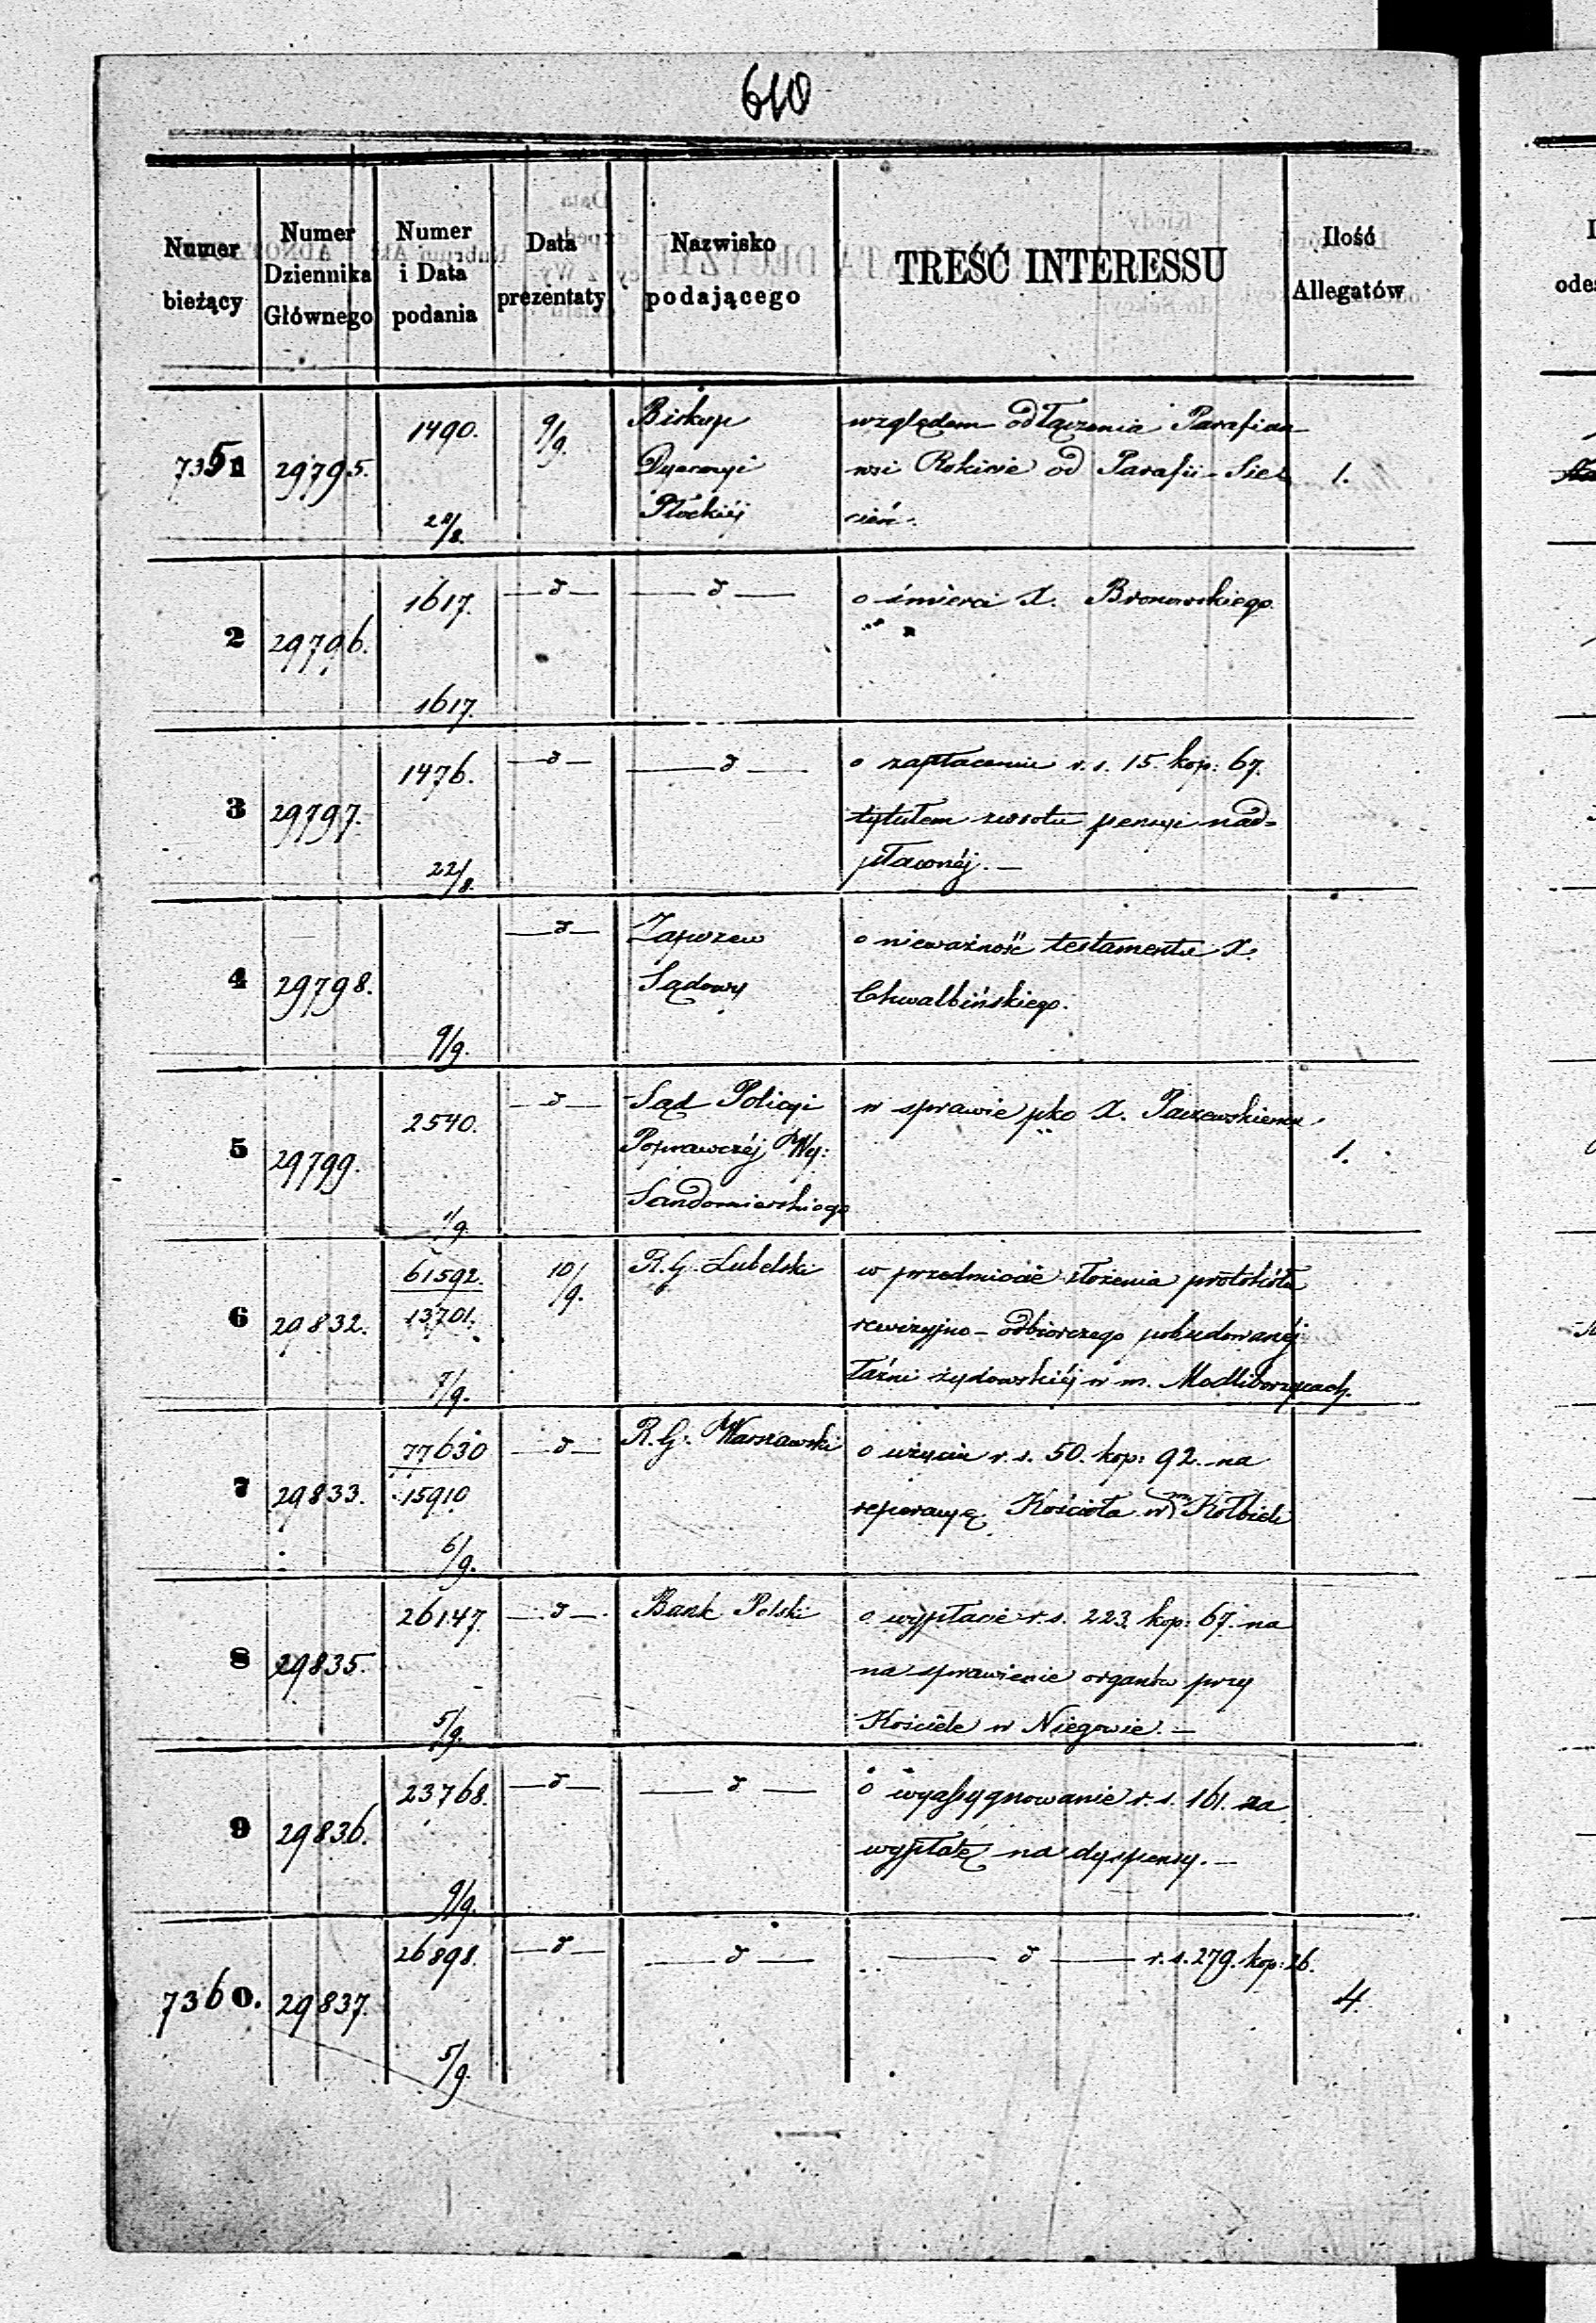 610
Numer bieżący
Numer Dziennika Głównego
Numer i Data podania
Data prezentaty
Nazwisko podającego
TREŚĆ INTERESSU
Ilość Allegatów
7351 29795. 1490. 28/8. 9/9. Biskup Dyecezyi Płockiéj
względem odłączenia Parafian
wsi Rokicie od Parafii Sie-
cień.
1.
2 29796. 1617. 1617. —d— —d—
o śmierci X. Bronowskiego.
3 29797. 1476. 22/8. —d— —d—
o zapłacenie r. s. 15 kop: 67.
tytułem zwrotu pensyi nad=
płaconéj. —
4 29798. 9/9. —d— Zapozew Sądowy
o nieważność testamentu X.
Chwalbińskiego.
5 29799. 2540. 1/9. —d— Sąd Policyi Poprawczéj Wy: Sandomierskiego
w sprawie pko X. Paczewskiemu
1.
6 29832. 61592. 13701. 7/9. 10/9. R. G. Lubelski
w przedmiocie złożenia protokółu
rewizyjno-odbiorczego pobudowanéj
łaźni żydowskiéj w m. Modliborzycach.
7 29833. 77630 15910 6/9. —d— R. G. Warszawski
o użycie r. s. 50. kop: 92. na
reperacyę Kościoła w m. Kołbieli
8 29835. 26147. 5/9. —d— Bank Polski
o wypłacie r. s. 223. kop: 67. na
na sprawienie organów przy
Kościele w Niegowie. —
9 29836. 23768. 9/9. —d— —d—
o wyassygnowanie r. s. 161. na
wypłatę na dyspensy. —
7360. 29837. 26898. 5/9. —d— —d—
—d— r. s. 279. kop: 26.
4.